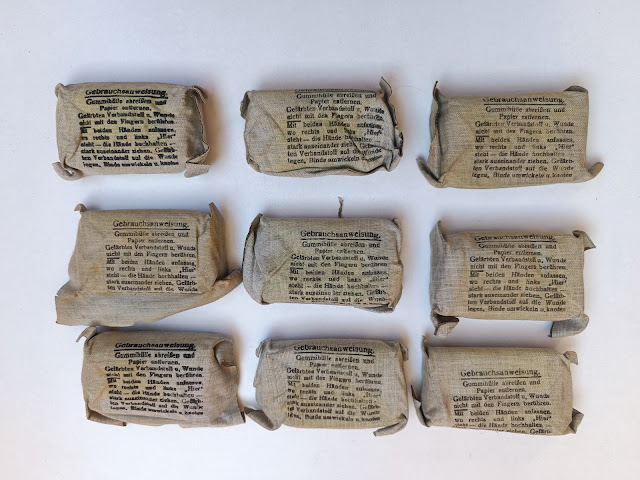 Gebrauchsanweisung.
Gummihülle abreißen und
Papier entfernen.
Gefärbten Verbandstoff u. Wunde
nicht mit den Fingern berühren.
Mit beiden Händen anfassen,
wo rechts und links „Hier"
steht — die Hände hochhalten —
stark auseinander ziehen. Gefärb-
ten Verbandstoff auf die Wunde
legen, Binde umwickeln u. knoten
Gebrauchsanweisung.
Gummihülle abreißen und
Papier entfernen.
Gefärbten Verbandstoff u. Wunde
nicht mit den Fingern berühren.
Mit beiden Händen anfassen,
wo rechts und links „Hier"
steht — die Hände hochhalten —
stark auseinander ziehen. Gefärb-
ten Verbandstoff auf die Wunde
legen, Binde umwickeln u. knoten
Gebrauchsanweisung.
Gummihülle abreißen und
Papier entfernen.
Gefärbten Verbandstoff u. Wunde
nicht mit den Fingern berühren.
Mit beiden Händen anfassen,
wo rechts und links „Hier"
steht — die Hände hochhalten —
stark auseinander ziehen. Gefärb-
ten Verbandstoff auf die Wunde
legen, Binde umwickeln u. knoten
Gebrauchsanweisung.
Gummihülle abreißen und
Papier entfernen.
Gefärbten Verbandstoff u. Wunde
nicht mit den Fingern berühren.
Mit beiden Händen anfassen,
wo rechts und links „Hier"
steht — die Hände hochhalten —
stark auseinander ziehen. Gefärb-
ten Verbandstoff auf die Wunde
Gebrauchsanweisung.
Gummihülle abreißen und
Papier entfernen.
Gefärbten Verbandstoff u. Wunde
nicht mit den Fingern berühren.
Mit beiden Händen anfassen,
wo rechts und links „Hier"
steht — die Hände hochhalten —
stark auseinander ziehen. Gefärb-
ten Verbandstoff auf die Wunde
Gebrauchsanweisung.
Gummihülle abreißen und
Papier entfernen.
Gefärbten Verbandstoff u. Wunde
nicht mit den Fingern berühren.
Mit beiden Händen anfassen,
wo rechts und links „Hier"
steht — die Hände hochhalten —
stark auseinander ziehen. Gefärb-
ten Verbandstoff auf die Wunde
legen, Binde umwickeln u. knoten
Gebrauchsanweisung.
Gummihülle abreißen und
Papier entfernen.
Gefärbten Verbandstoff u. Wunde
nicht mit den Fingern berühren.
Mit beiden Händen anfassen,
wo rechts und links „Hier"
steht — die Hände hochhalten —
stark auseinander ziehen. Gefärb-
ten Verbandstoff auf die Wunde
legen, Binde umwickeln u. knoten
Gebrauchsanweisung.
Gummihülle abreißen und
Papier entfernen.
Gefärbten Verbandstoff u. Wunde
nicht mit den Fingern berühren.
Mit beiden Händen anfassen,
wo rechts und links „Hier"
steht — die Hände hochhalten —
stark auseinander ziehen. Gefärb-
ten Verbandstoff auf die Wunde
legen, Binde umwickeln u. knoten
Gebrauchsanweisung.
Gummihülle abreißen und
Papier entfernen.
Gefärbten Verbandstoff u. Wunde
nicht mit den Fingern berühren.
Mit beiden Händen anfassen,
wo rechts und links „Hier"
steht — die Hände hochhalten —
stark auseinander ziehen. Gefärb-